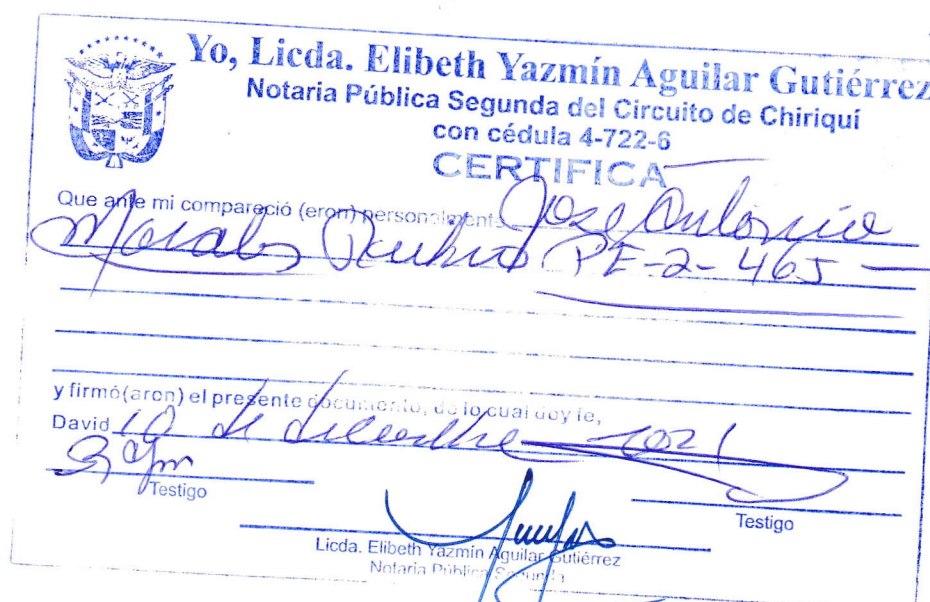 Yo, Licda. Elibeth Yazmín Aguilar Gutiérrez
Notaria Pública Segunda del Circuito de Chiriquí
con cédula 4-722-6
CERTIFICA
Que ante mi compareció (eron) personalmente Jose Antonio
Morales PE-2-465
y firmó(aron) el presente documento, de lo cual doy fe,
David 10 de diciembre 2021
Testigo
Testigo
Licda. Elibeth Yazmín Aguilar Gutiérrez
Notaria Pública Segunda